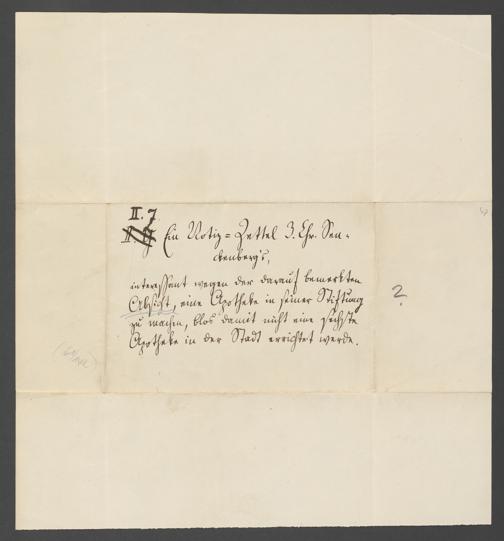 II. 7
Ein Notiz-Zettel J. Chr. Sen-
ckenberg's,
interessant wegen der darauf bemerkten
Absicht, eine Apotheke in seiner Stiftung
zu machen, blos damit nicht eine sechste
Apotheke in der Stadt errichtet werde.
?